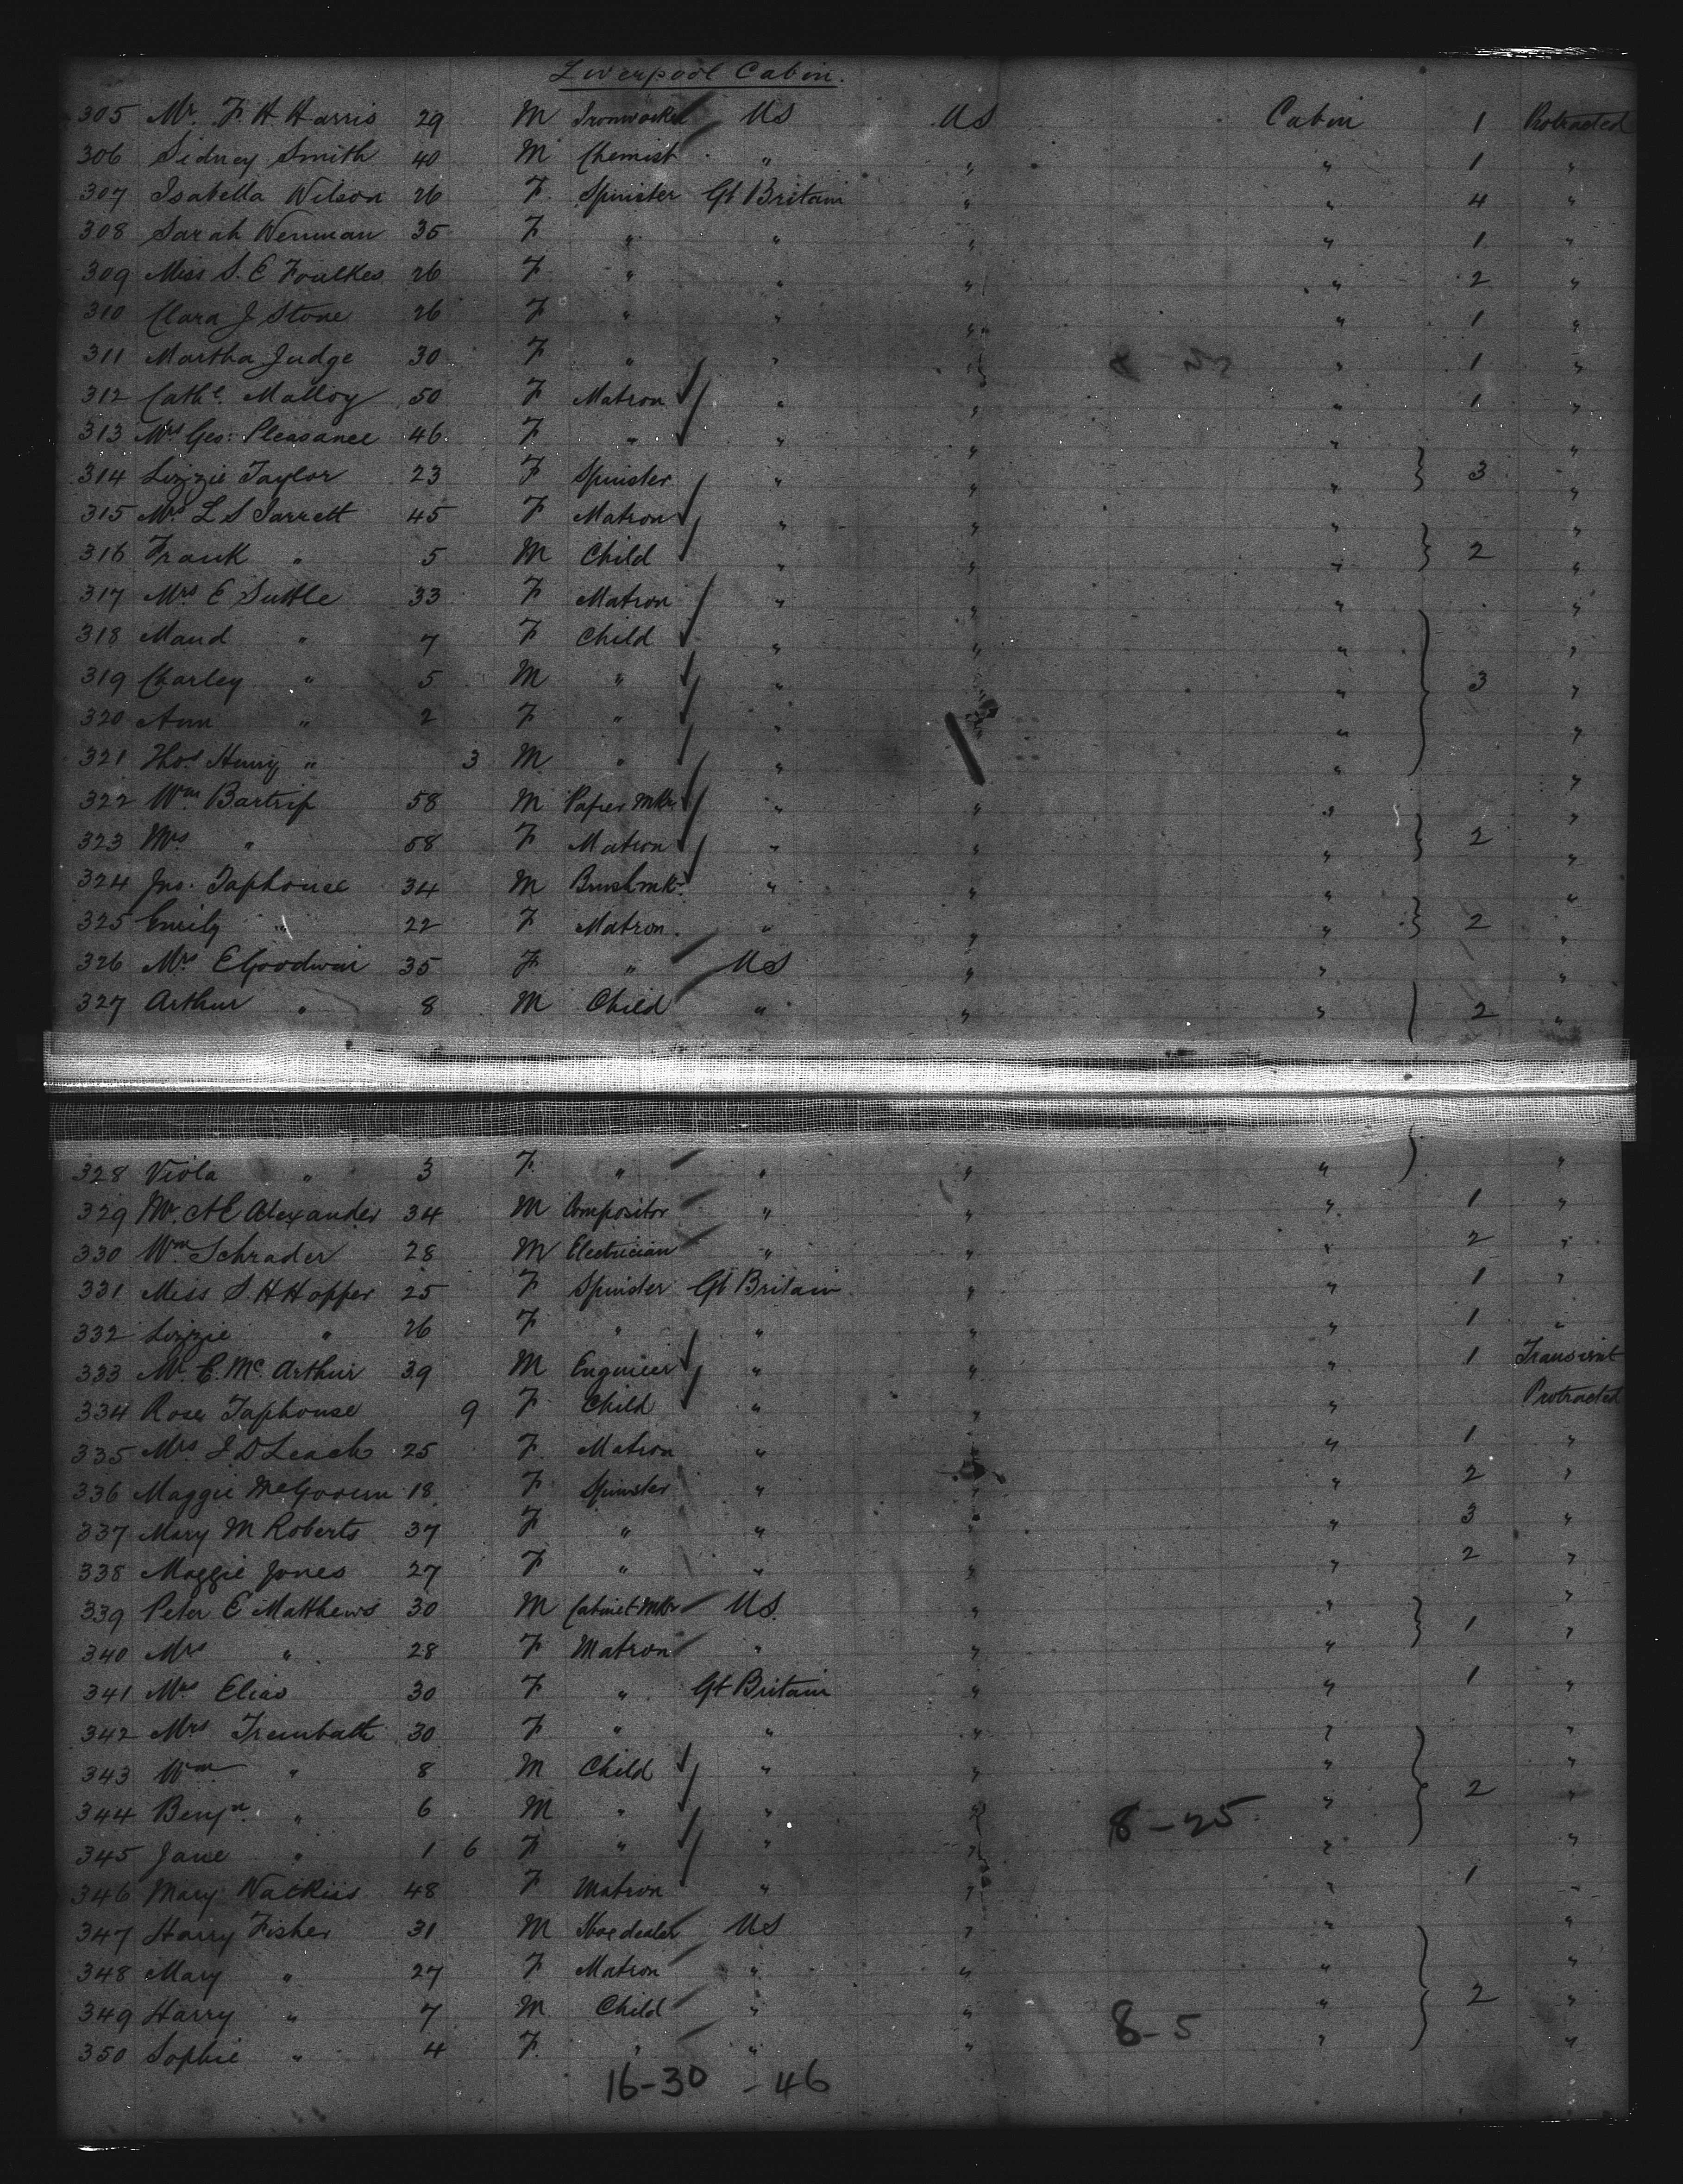 Liverpool Cabin.
305 Mr. F. H. Harris 29 M Ironworker US US Cabin 1 Protracted
306 Sidney Smith 40 M Chemist " " " 1 "
307 Isabella Wilson 26 F Spinster Gt Britain " " 4 "
308 Sarah Wenman 35 F " " " " 1 "
309 Miss S. E Foulkes 26 F " " " " 2 "
310 Clara J Stone 26 F " " " " 1 "
311 Martha Judge 30 F " " " " 1 "
312 Cathe. Malloy 50 F Matron " " " 1 "
313 Mrs Geo: Pleasance 46 F " " " " "
314 Lizzie Taylor 23 F Spinster " " " } 3 "
315 Mrs L S Jarrett 45 F Matron " " " "
316 Frank " 5 M Child " " " } 2 "
317 Mrs E Suttle 33 F Matron " " " "
318 Maud " 7 F Child " " " "
319 Charley " 5 M " " " " } 3 "
320 Ann " 2 F " " " " "
321 Thos Henry " 3 M " " " " "
322 Wm Bartrip 58 M Paper Mkr " " " "
323 Mrs " 58 F Matron " " " } 2 "
324 Jno. Taphouse 34 M Brushmkr. " " " "
325 Emily " 22 F Matron. " " " } 2 "
326 Mrs E Goodwin 35 F " US " " "
327 Arthur " 8 M Child " " " 2 "
328 Viola " 3 F " " " " "
329 Mr. A E Alexander 34 M Compositor " " " 1 "
330 Wm Schrader 28 M Electrician " " " 2 "
331 Miss S. H Hopper 25 F Spinster Gt Britain " " 1 "
332 Lizzie " 26 F " " " " 1 "
333 Mr. C. Mc. Arthur 39 M Engineer " " " 1 Transient
334 Rose Taphouse 9 F Child " " " Protracted
335 Mrs J. D Leach 25 F Matron " " " 1 "
336 Maggie McGovern 18 F Spinster " " " 2 "
337 Mary M Roberts 37 F " " " " 3 "
338 Maggie Jones 27 F " " " " 2 "
339 Peter E Matthews 30 M Cabinet Mkr US. " " "
340 Mrs " 28 F Matron " " " } 1 "
341 Mrs Elias 30 F " Gt Britain " " 1 "
342 Mrs Trembath 30 F " " " " "
343 Wm " 8 M Child " " " "
344 Benjn. " 6 M " " " 8-25 " } 2 "
345 Jane " 1 6 F " " " " "
346 Mary Watkiss 48 F Matron " " " 1 "
347 Harry Fisher 31 M Shoe dealer US " " "
348 Mary " 27 F Matron " " " "
349 Harry " 7 M Child " " 8-5 " } 2 "
350 Sophie " 4 F. " " " " "
16-30 - 46